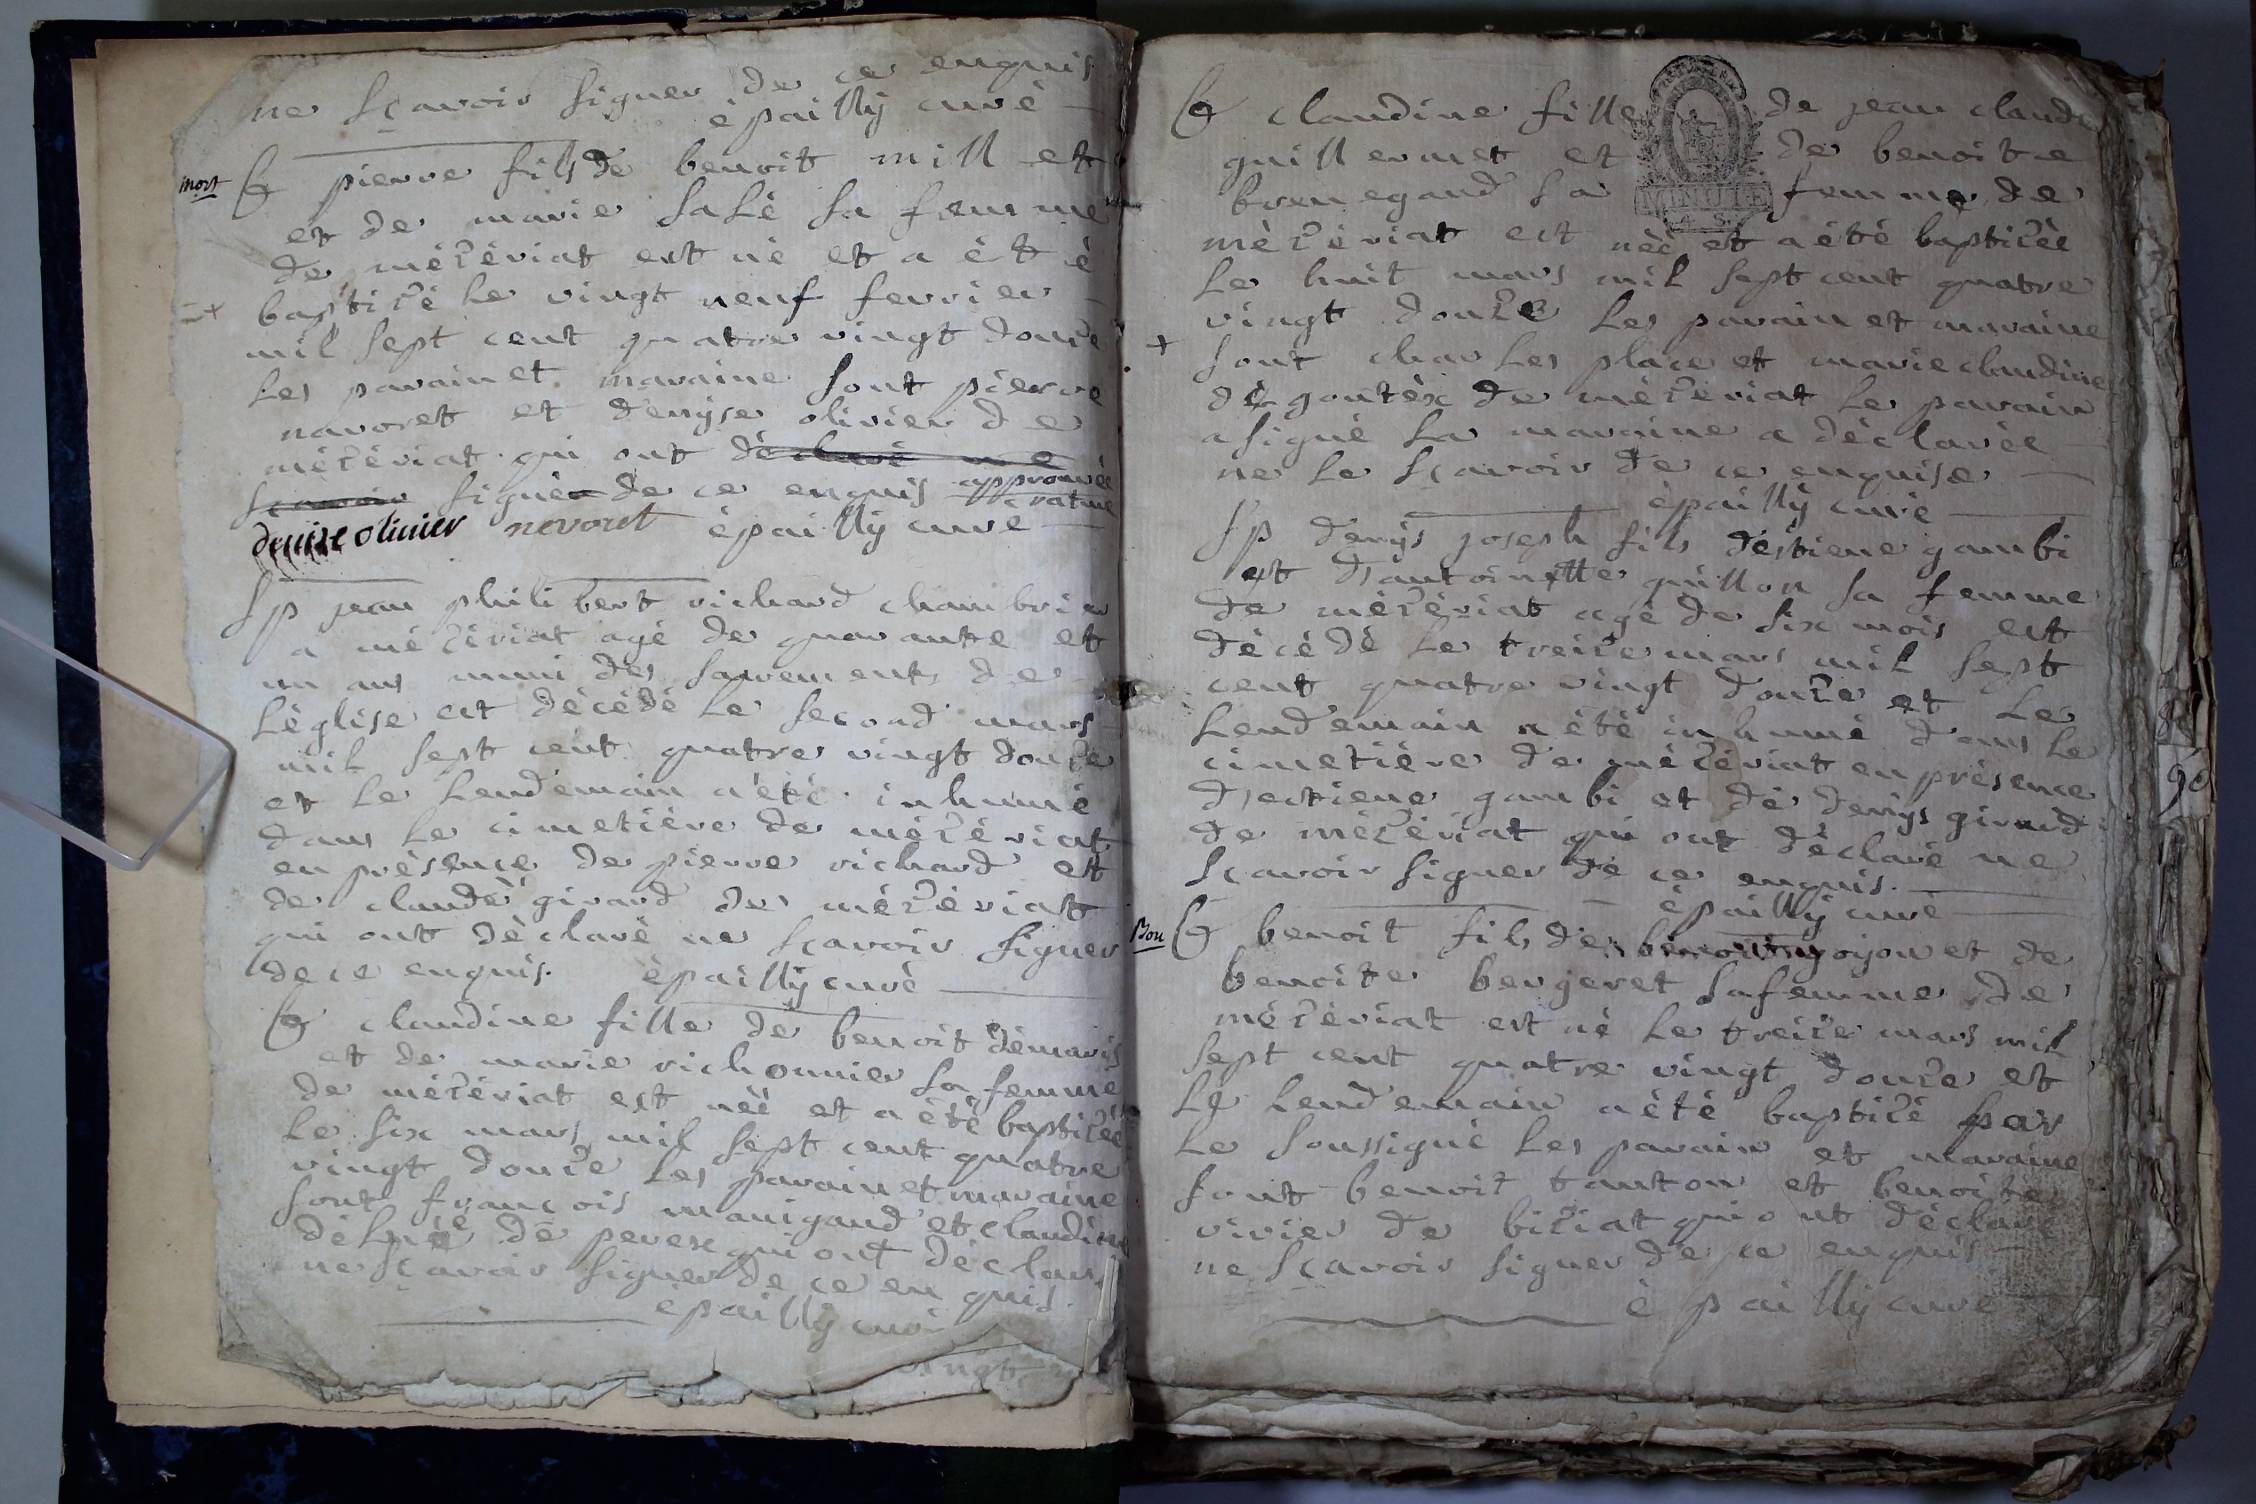 ne sçavoir signer de ce enquis
épaillÿ curé
mort
B pierre fils de benoit mill et
et de marie salé sa femme
de mézériat est né et a été
baptizé le vingt neuf fevrier
mil sept cent quatre vingt douze
les parain et maraine sont pierre
navoret et denÿse olivier de
mézériat qui ont déclaré ne
sçavoir signé de ce enquis approuvée
rature
denise olivier nevoret épaillÿ curé
Sp jean philibert richard chambrier
a mézériat agé de quarante et
un ans muni des sacrements de
l'église est décédé le second mars
mil sept cent quatre vingt douze
et le lendemain a été inhumé
dans le cimetière de mézériat
en présence de pierre richard et
de claude girard de mézériat
qui ont déclaré ne sçavoir signer
de ce enquis. épaillÿ curé
B claudine fille de benoit démaris
et de marie richonnier sa femme
de mézériat est néé et a été baptizéé
le six mars mil sept cent quatre
vingt douze les parain et maraine
sont francois manigand et claudine
de perex qui ont déclaré
ne sçavoir signer de ce enquis.
épaillÿ curé
vingt
B claudine fille de jean claude
guillermet et de benoite
brevegand sa femme de
MINUTE
4 S
mézériat est néé et a été baptizéé
le huit mars mil sept cent quatre
vingt douze les parain et maraine
sont charles place et marie claudine
dégoutéx de mézériat le parain
a signé la maraine a déclaréé
ne le sçavoir de ce enquise
épaillÿ curé
Sp denÿs joseph fils d'estiene gambi
et d'antoinette guillon sa femme
de mézériat agé de six mois est
décédé le treize mars mil sept
cent quatre vingt douze et le
lendemain a été inhumé dans le
cimetière de mézériat en présence
d'estiene gambi et de denÿs girard
de mézériat qui ont déclaré ne
sçavoir signer de ce enquis.
épaillÿ curé
Bon
B benoit fils de benoit goÿon et de
benoite bergeret sa femme de
mézériat est né le treize mars mil
sept cent quatre vingt douze et
le lendemain a été baptizé par
le soussigné les parain et maraine
sont benoit tanton et benoite
vivier de biziat qui ont déclaré
ne sçavoir signer de ce enquis
épaillÿ curé